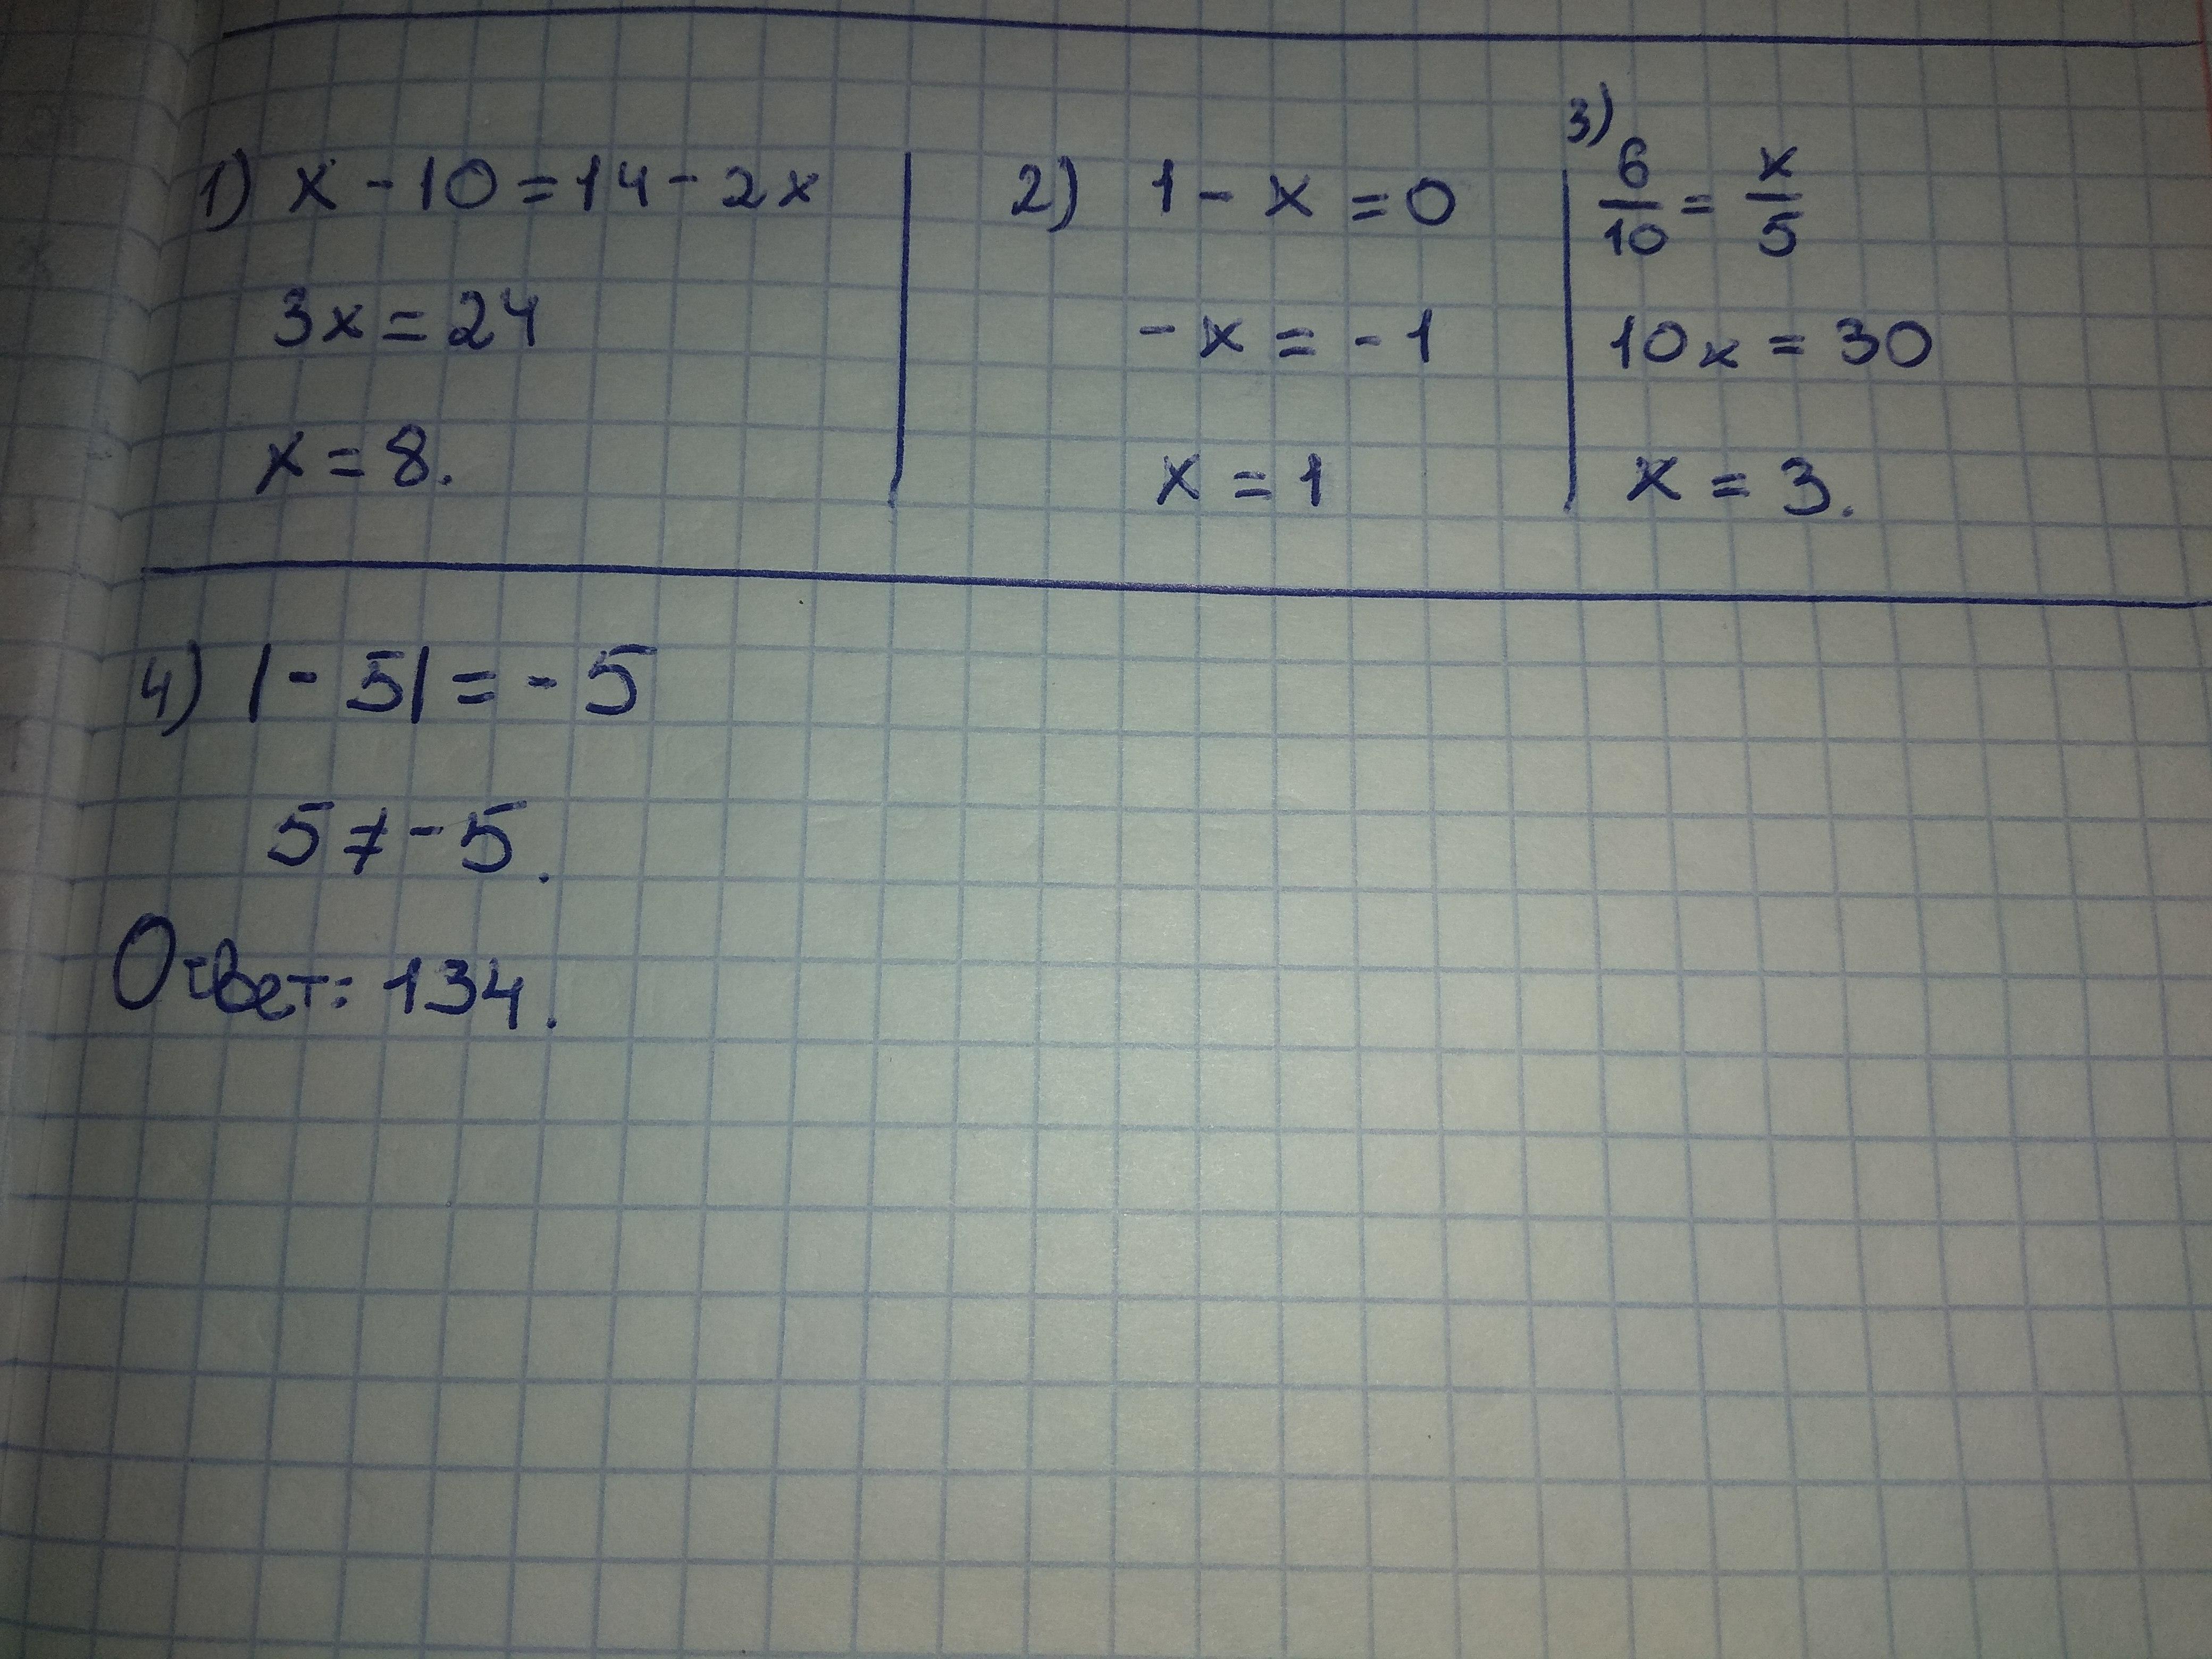 1) x - 10 = 14 - 2x
3x = 24
x = 8.
2) 1 - x = 0
-x = -1
x = 1
3) 6/10 = x/5
10x = 30
x = 3.
4) |-5| = -5
5 ≠ -5.
Ответ: 134.